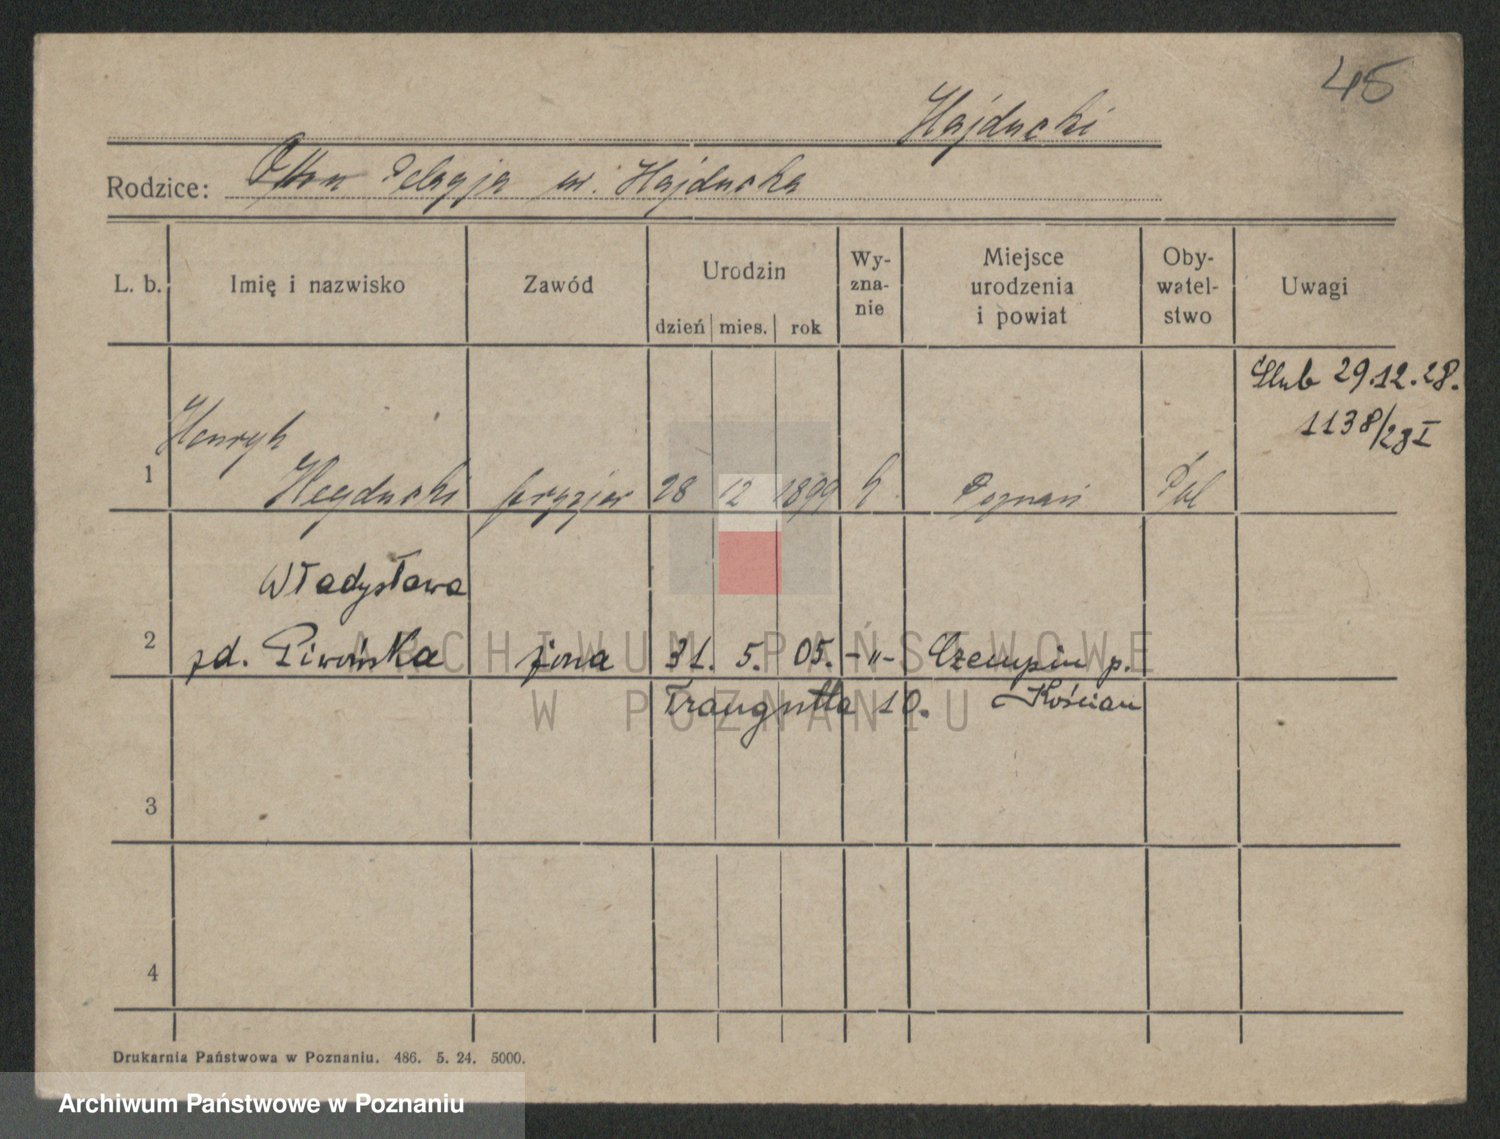 45
Hajducki
Rodzice: Otton Pelagja ur. Hajducka
L. b. Imię i nazwisko Zawód Urodzin dzień mies. rok Wy-zna-nie Miejsce urodzenia i powiat Oby-watel-stwo Uwagi
Ślub 29.12.28.
1138/28 I
Henryk
1 Hajducki fryzjer 28 12 1899 k. Poznań Pol
Władysława
2 zd. Piwońska żona 31. 5. 05. -"- Czempiń p.
Traugutta 10. Kościan
3
4
Drukarnia Państwowa w Poznaniu. 486. 5. 24. 5000.
ARCHIWUM PAŃSTWOWE
W POZNANIU
Archiwum Państwowe w Poznaniu